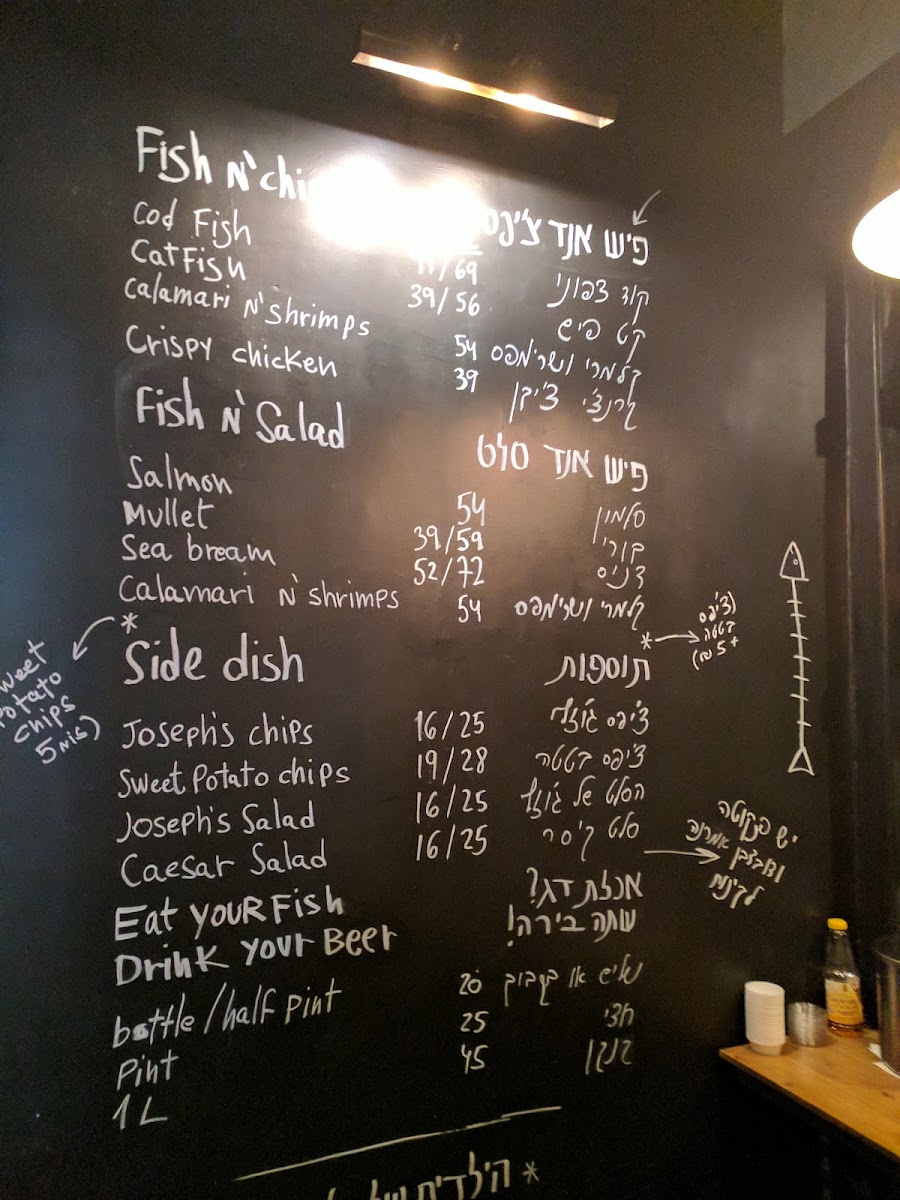 Fish N' פיש אנד
Cod Fish /69 קוד צפוני
Catfish 39/56 קט פיש
Calamari N' shrimps 54 קלמרי ושרימפס
Crispy chicken 39 קרנצ'י צ'יקן
Fish N' Salad פיש אנד סלט
Salmon 54 סלמון
Mullet 39/59 בורי
Sea bream 52/72 דניס
Calamari N' shrimps 54 קלמרי ושרימפס
* * 
Side dish תוספות
(צ'יפס
בטטה
+5 ₪)
Potato
chips
5 NIS)
Joseph's chips 16/25 צ'יפס ג'וזף
Sweet Potato chips 19/28 צ'יפס בטטה
Joseph's Salad 16/25 הסלט של ג'וזף
Caesar Salad 16/25 סלט קיסר
Eat YOUR Fish אכלת דג?
Drink Your Beer שתה בירה!
לקינוח
bottle/half pint 20 שליש או בקבוק
Pint 25 חצי
1 L 45 קנקן
* הילדים